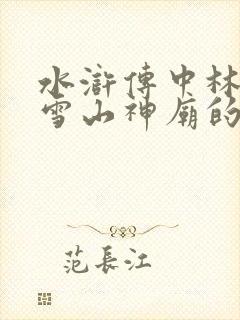 水滸傳中林
雪山神廟的
范長江